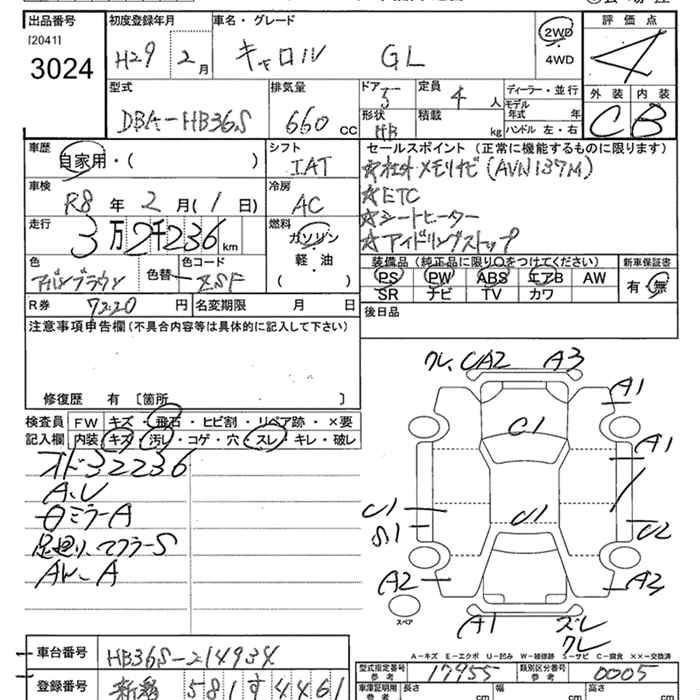 出品番号 [2041] 3024
初度登録年月 H29 年 2月
車名・グレード キャロル GL
2WD
4WD
評価点 4
外装 内装
C B
型式 DBA-HB36S
排気量 660 CC
ドア 5
形状 HB
定員 4 人
積載 kg
ディーラー・並行
モデル年式 年
ハンドル 左・右
車歴 自家用・( )
シフト IAT
車検 R8年 2月(1日)
冷房 AC
走行 3万2千236km
燃料 ガソリン・軽・油 ( )
色 アーバンブラウン
色替
色コード ZSF
R券 7220円
名変期限 月 日
セールスポイント (正常に機能するものに限ります)
☆社外メモリナビ(AVN137M)
☆ETC
☆シートヒーター
☆アイドリングストップ
装備品 (純正品に限り○をつけてください)
PS PW ABS エアB AW
SR ナビ TV カワ
新車保証書
有・無
後日品
注意事項申告欄(不具合内容等は具体的に記入して下さい)
修復歴 有 〔箇所 〕
検査員記入欄
FW キズ・飛石・ヒビ割・リペア跡・×要
内装 キズ・汚レ・コゲ・穴・スレ・キレ・破レ
オド32236
A.U
ミラーA
足廻リ、マフラーS
AW-A
クレ、CA2 A3
A1
C1
A1
U1
S1
U1
U2
A2
A3
スペア
A1
ズレ
クレ
A-キズ E-エクボ U-凹み W-補修跡 S-サビ C-腐食 ××-交換済
車台番号 HB36S-214934
登録番号 新潟 581 す 4461
型式指定番号 参考 17955
類別区分番号 参考 0005
車庫証明用 参考 長さ cm 幅 cm cm